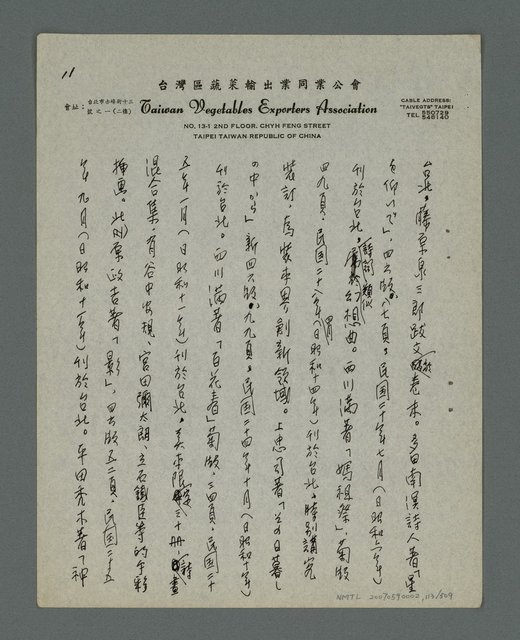 11
台灣區蔬菜輸出業同業公會
會址：台北市赤峰街十三號之一（二樓）
Taiwan Vegetables Exporters Association
CABLE ADDRESS:
"TAIVEGTS" TAIPEI
TEL 550729
546140
NO. 13-1 2ND FLOOR. CHYH FENG STREET
TAIPEI TAIWAN REPUBLIC OF CHINA
台北。藤原泉三郎跋文於卷末。多田南溟詩人著「星
を仰いで」，四六版。七頁。民國二十年七月（日昭和六年）
刊於台北。詩簡類似幻想曲。西川滿著「媽祖祭」，菊版
四九頁，民國二十四年四月（日昭和十年）刊於台北。特別講究
裝訂，為裝本界創新領域。上忠司著「その日暮し
の中から」新四六版。九九頁。民國二十四年十月（日昭和十年）
刊於台北。西川滿著「百花春」菊版，三四頁。民國二十
五年一月（日昭和十一年）刊於台北。美本限定三十册，詩畫
混合集，有谷中安規、宮田彌太朗、立石鐵臣等的手彩
插画。北原政吉著「影」，四六版五二頁，民國二十五
年九月（日昭和十一年）刊於台北。本田秀木著「神
NMTL 20070590002, 113/509